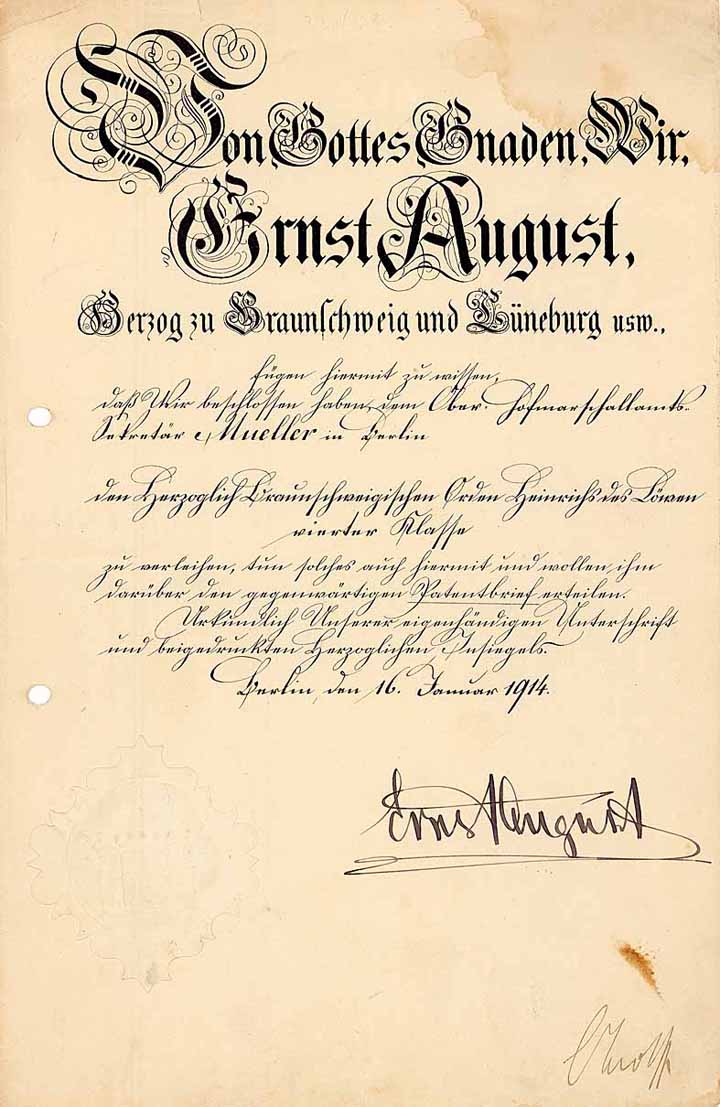 Von Gottes Gnaden, Wir,
Ernst August,
Herzog zu Braunschweig und Lüneburg usw.,
fügen hiermit zu wissen,
daß Wir beschlossen haben, dem Ober-Hofmarschallamts-
Sekretär Mueller in Berlin
den Herzoglich Braunschweigischen Orden Heinrichs des Löwen
vierter Klasse
zu verleihen, tun solches auch hiermit und wollen ihm
darüber den gegenwärtigen Patentbrief erteilen.
Urkundlich Unserer eigenhändigen Unterschrift
und beigedruckten Herzoglichen Insiegels.
Berlin, den 16. Januar 1914.
Ernst August